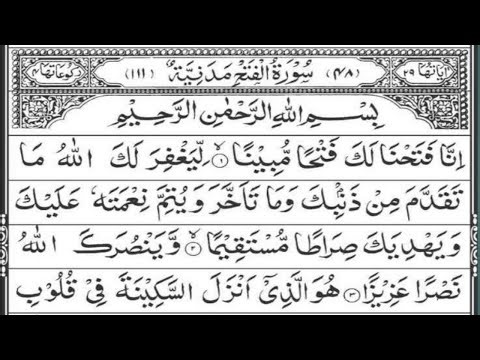 اٰیَاتُهَا ۲۹ (۴۸) سُوْرَةُ الْفَتْحِ مَدَنِيَّةٌ (۱۱۱) رُكُوْعَاتُهَا ۴
بِسْمِ اللهِ الرَّحْمٰنِ الرَّحِيْمِ
اِنَّا فَتَحْنَا لَكَ فَتْحًا مُّبِيْنًا ۙ﴿۱﴾ لِّيَغْفِرَ لَكَ اللهُ مَا
تَقَدَّمَ مِنْ ذَنْۢبِكَ وَمَا تَاَخَّرَ وَيُتِمَّ نِعْمَتَهٗ عَلَيْكَ
وَيَهْدِيَكَ صِرَاطًا مُّسْتَقِيْمًا ۙ﴿۲﴾ وَّيَنْصُرَكَ اللهُ
نَصْرًا عَزِيْزًا ﴿۳﴾ هُوَ الَّذِيْۤ اَنْزَلَ السَّكِيْنَةَ فِيْ قُلُوْبِ